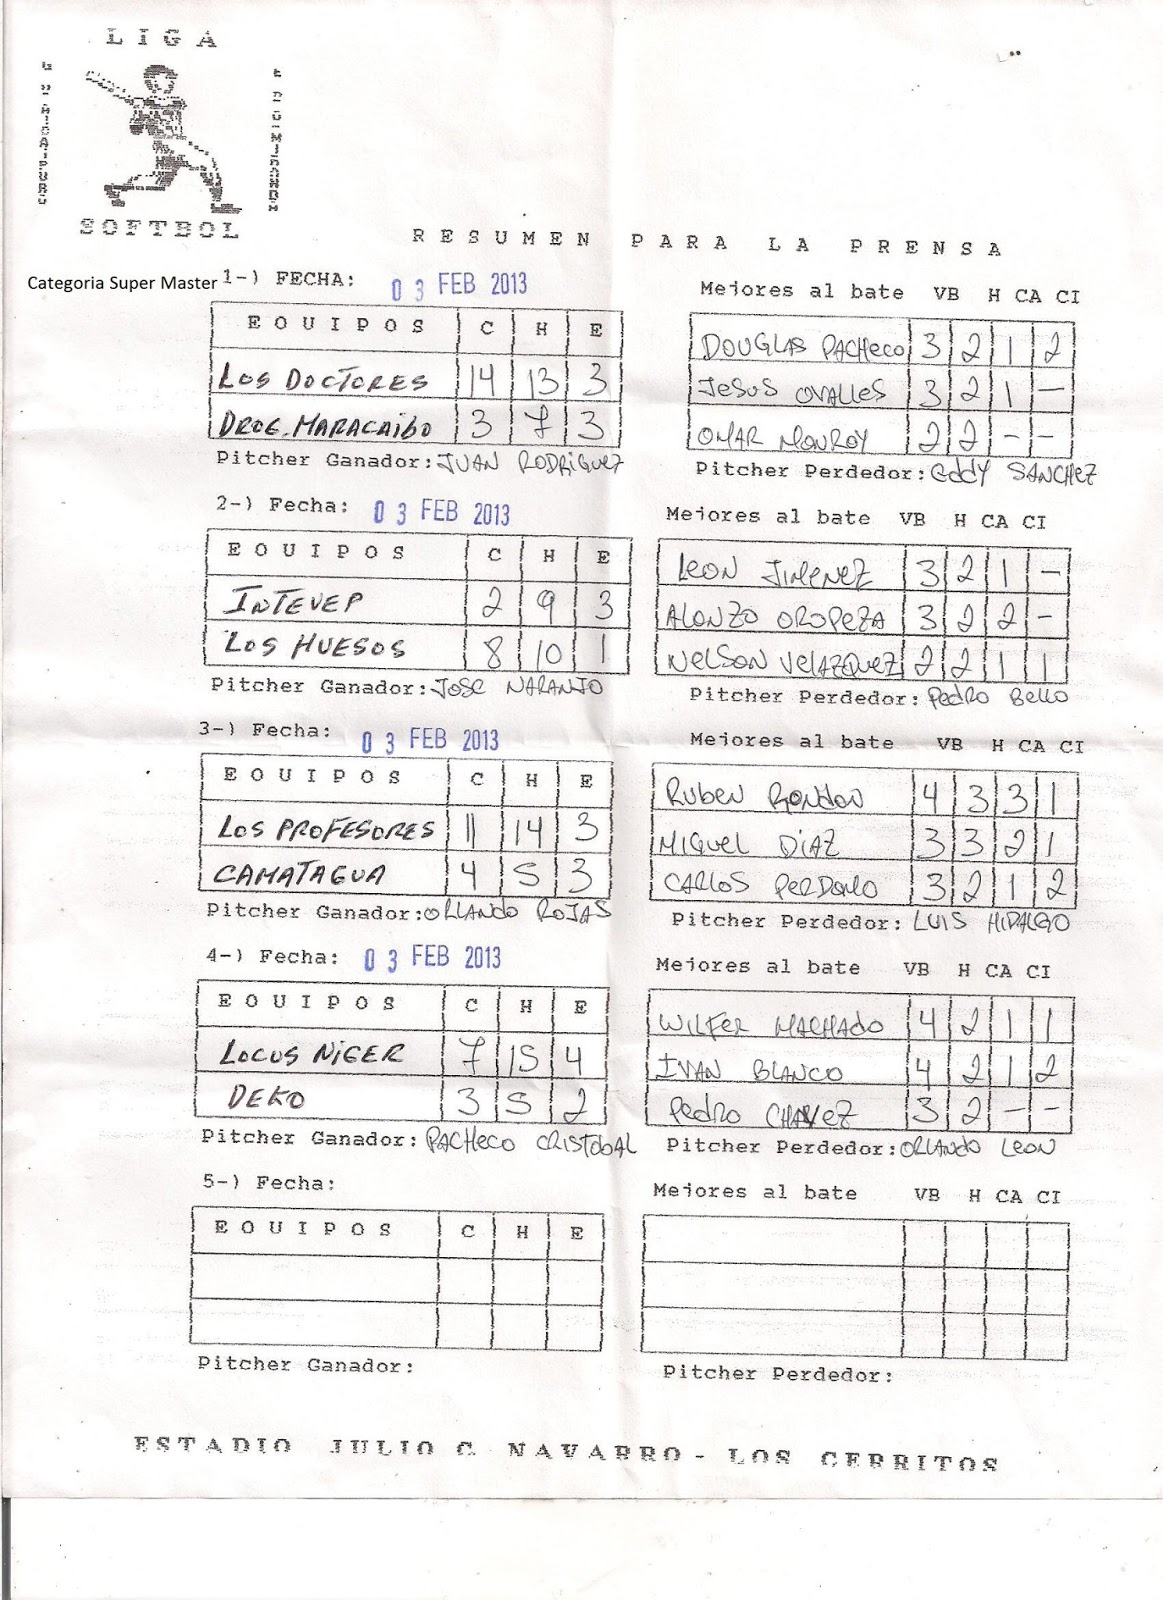 LIGA
SOFTBOL
RESUMEN PARA LA PRENSA
Categoria Super Master
1-) FECHA: 03 FEB 2013 Mejores al bate VB H CA CI
EQUIPOS C H E
DOUGLAS PACHECO 3 2 1 2
LOS DOCTORES 14 13 3
JESUS OVALLES 3 2 1 -
DROG. MARACAIBO 3 7 3
OMAR MONROY 2 2 - -
Pitcher Ganador: JUAN RODRIGUEZ Pitcher Perdedor: EDDY SANCHEZ
2-) Fecha: 03 FEB 2013 Mejores al bate VB H CA CI
EQUIPOS C H E
LEON JIMENEZ 3 2 1 -
INTEVEP 2 9 3
ALONZO OROPEZA 3 2 2 -
LOS HUESOS 8 10 1
NELSON VELAZQUEZ 2 2 1 1
Pitcher Ganador: JOSE NARANJO Pitcher Perdedor: PEDRO BELLO
3-) Fecha: 03 FEB 2013 Mejores al bate VB H CA CI
EQUIPOS C H E
RUBEN RONDON 4 3 3 1
LOS PROFESORES 11 14 3
MIGUEL DIAZ 3 3 2 1
CAMATAGUA 4 5 3
CARLOS PERDOMO 3 2 1 2
Pitcher Ganador: ORLANDO ROJAS Pitcher Perdedor: LUIS HIDALGO
4-) Fecha: 03 FEB 2013 Mejores al bate VB H CA CI
EQUIPOS C H E
WILFER MACHADO 4 2 1 1
LOCUS NIGER 7 15 4
IVAN BLANCO 4 2 1 2
DEKO 3 5 2
PEDRO CHAVEZ 3 2 - -
Pitcher Ganador: PACHECO CRISTOBAL Pitcher Perdedor: ORLANDO LEON
5-) Fecha: Mejores al bate VB H CA CI
EQUIPOS C H E
Pitcher Ganador: Pitcher Perdedor:
ESTADIO JULIO C. NAVARRO - LOS CERRITOS